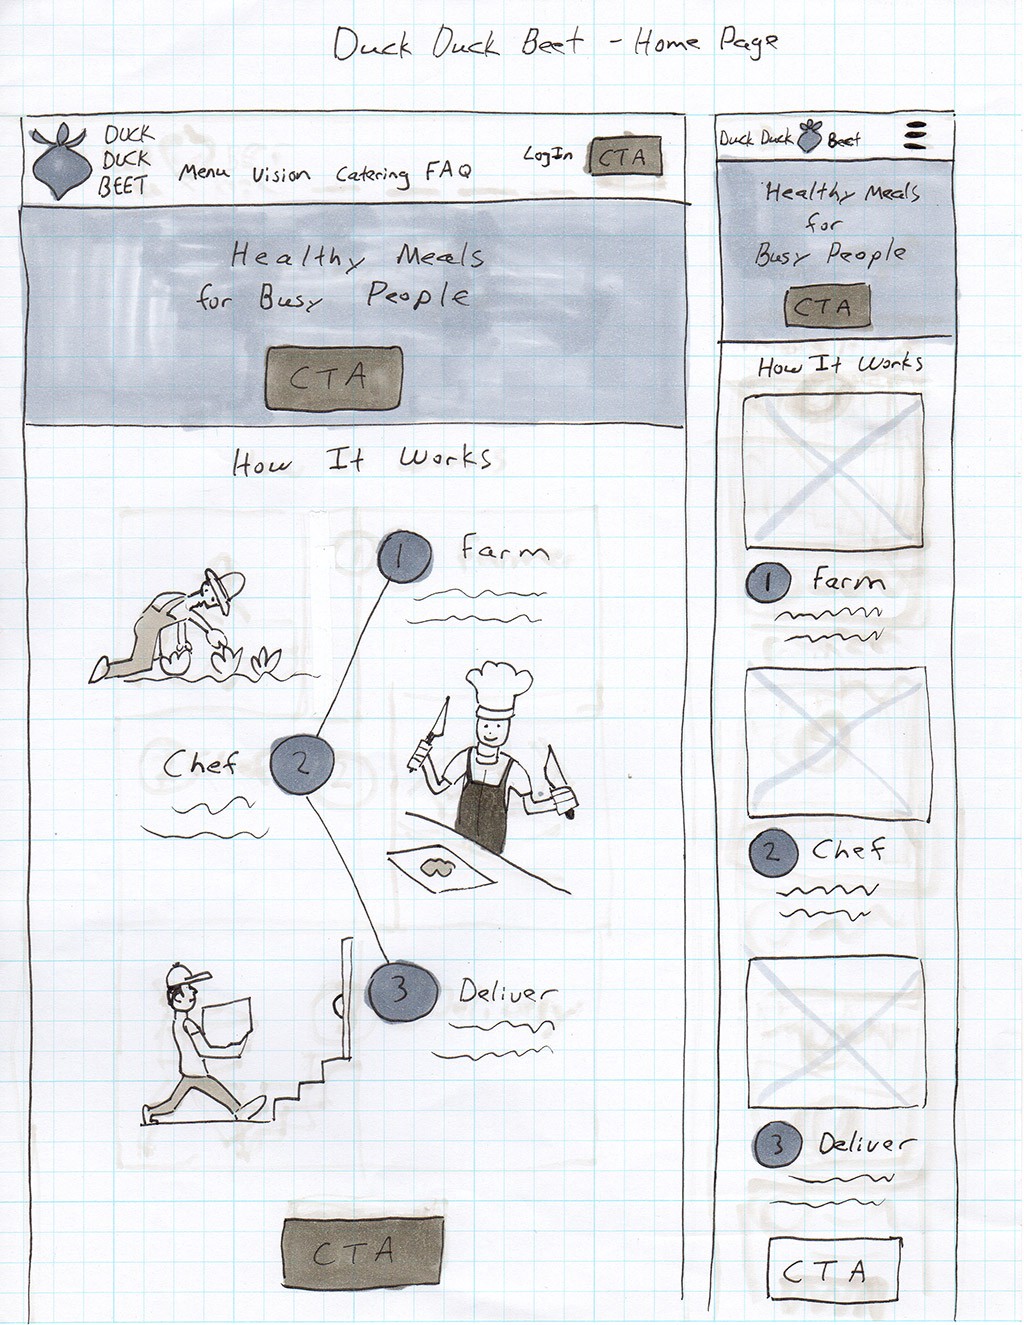 Duck Duck Beet - Home Page
DUCK
DUCK
BEET
Menu Vision Catering FAQ
LogIn
CTA
Healthy Meals
for Busy People
CTA
How It Works
1 Farm
Chef 2
3 Deliver
CTA
Duck Duck Beet
Healthy Meals
for
Busy People
CTA
How It Works
1 Farm
2 Chef
3 Deliver
CTA